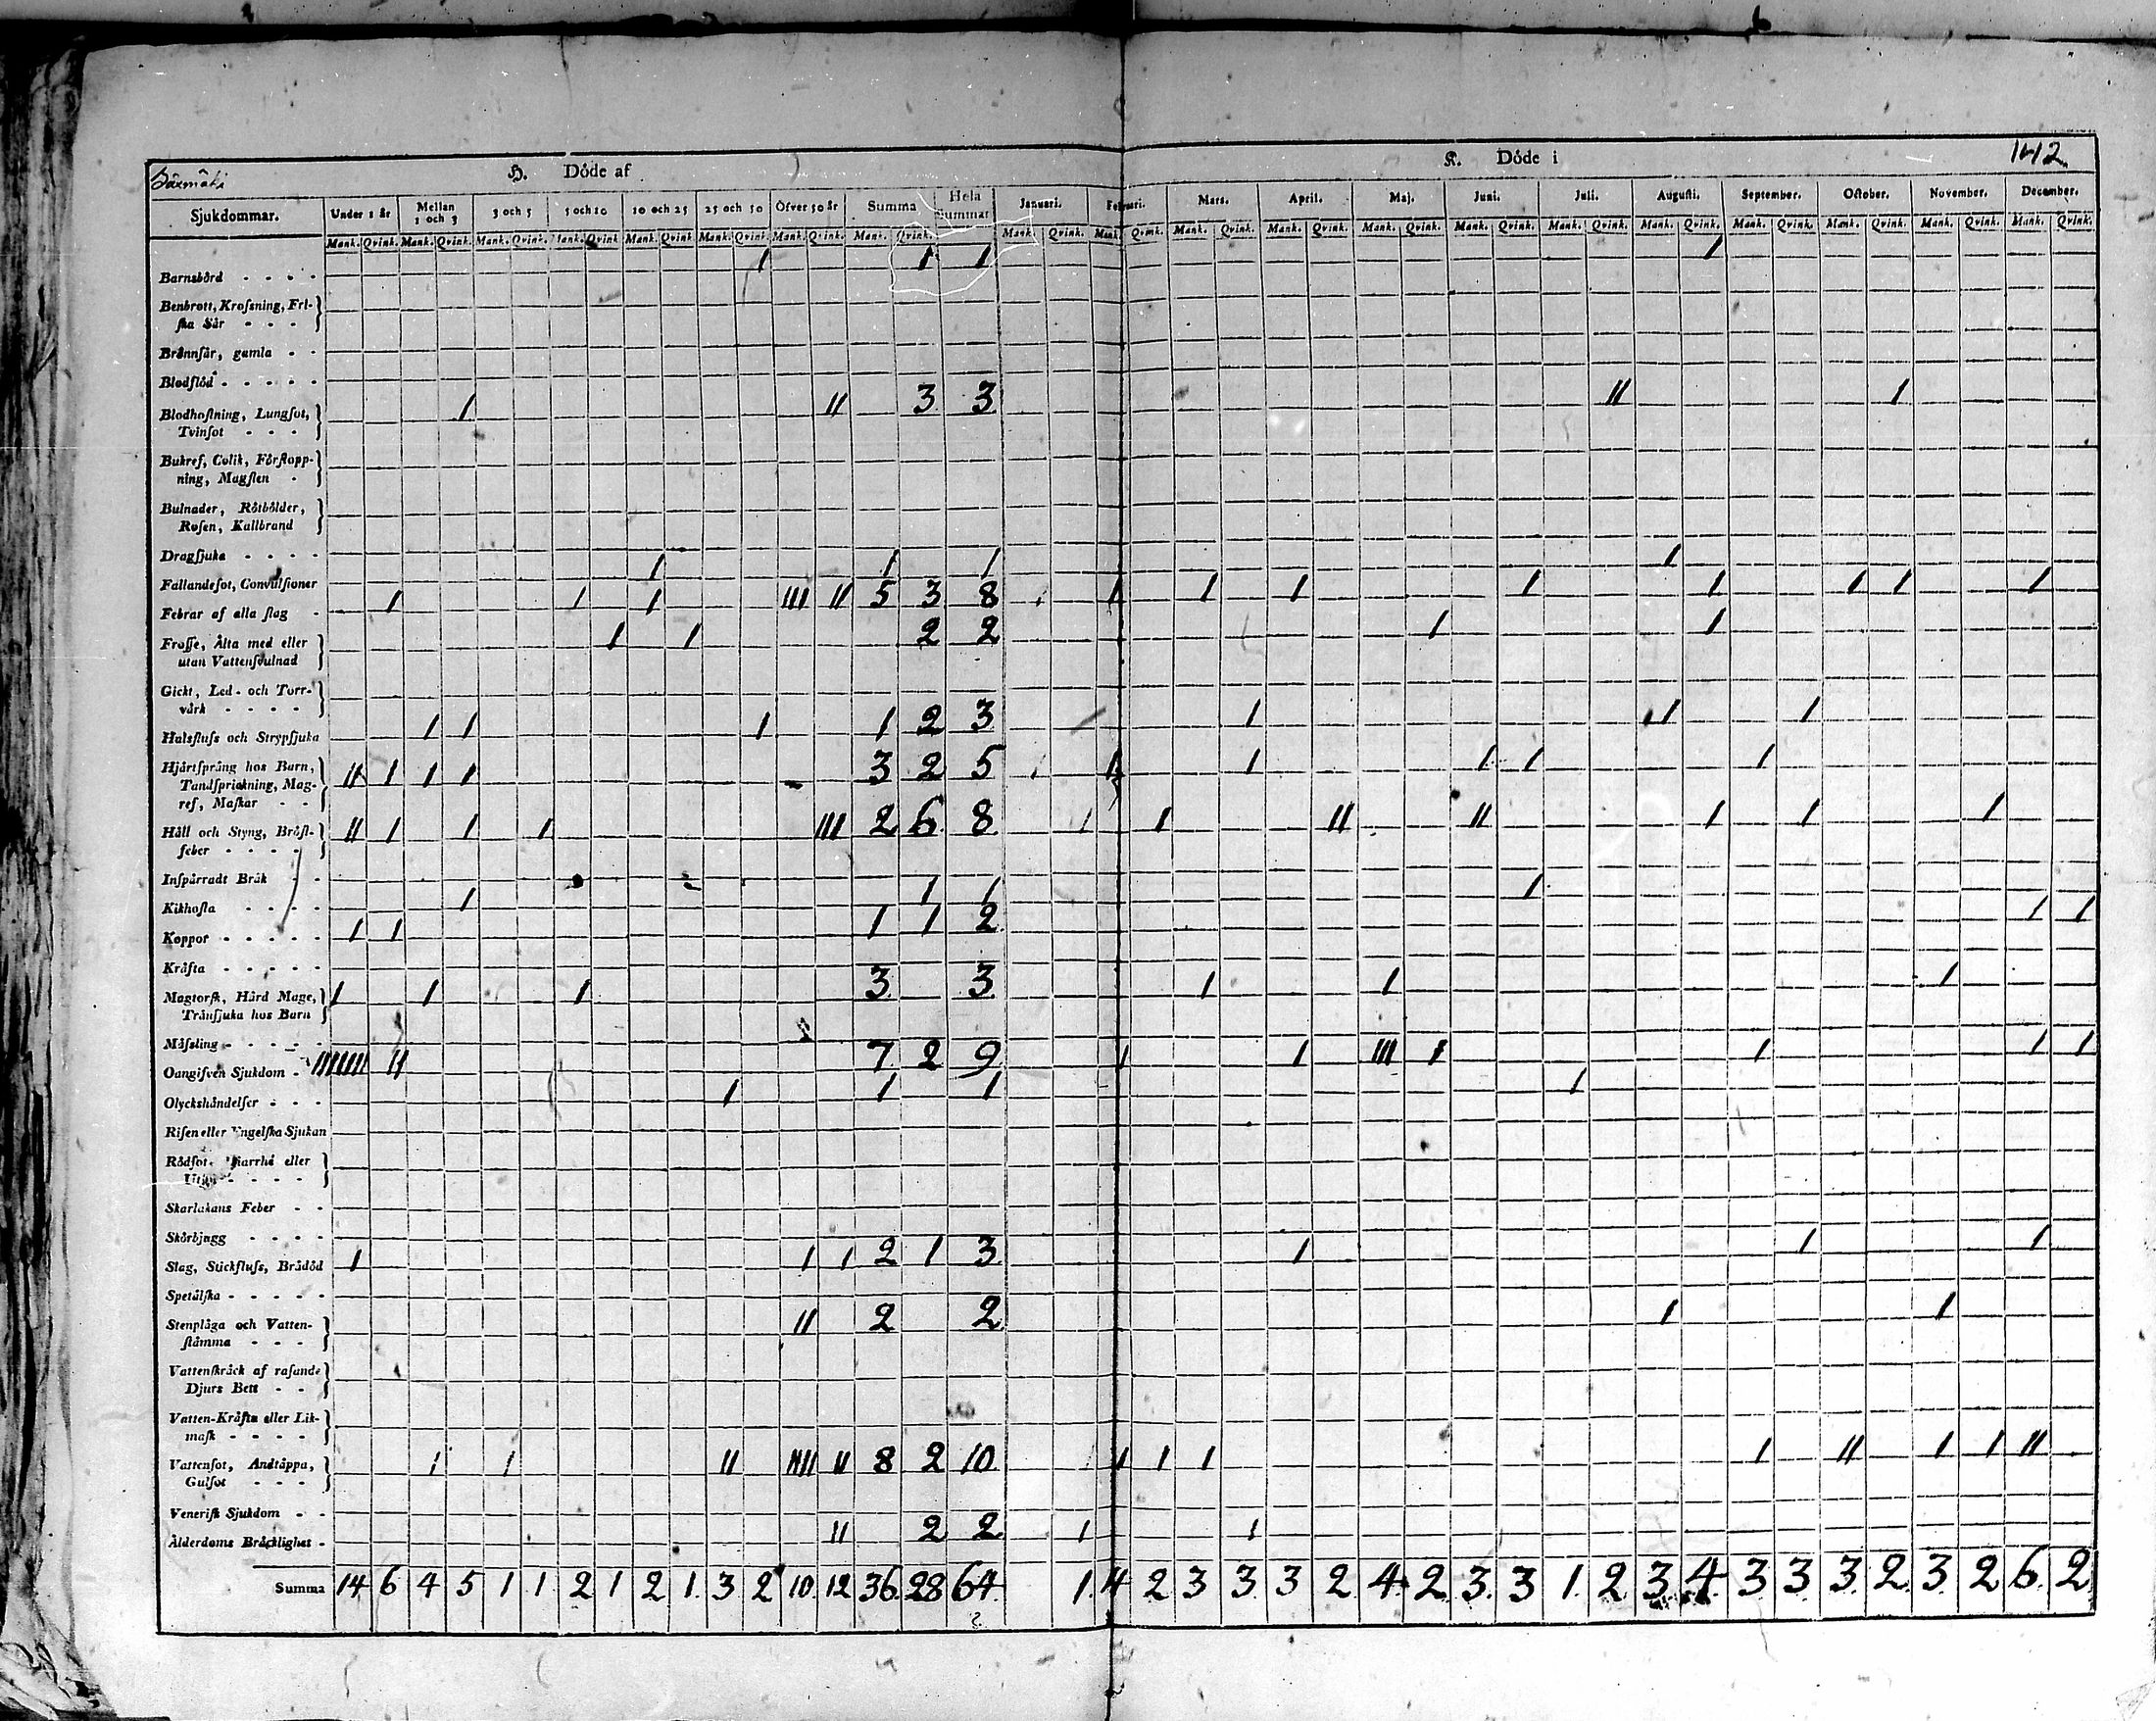 Säxmäki
H. Döde af
K. Döde i
1812.
Sjukdommar. Under 1 år Mellan 1 och 3 3 och 5 5 och 10 10 och 25 25 och 50 Öfver 50 år Summa Hela Summan Januari. Februari. Mars. April. Maj. Juni. Juli. Augusti. September. October. November. December.
Mank. Qvink. Mank. Qvink. Mank. Qvink. Mank. Qvink. Mank. Qvink. Mank. Qvink. Mank. Qvink. Mank. Qvink. Mank. Qvink. Mank. Qvink. Mank. Qvink. Mank. Qvink. Mank. Qvink. Mank. Qvink. Mank. Qvink. Mank. Qvink. Mank. Qvink. Mank. Qvink. Mank. Qvink. Mank. Qvink.
Barnsbörd - - - - 1 1 1 1
Benbrott, Krossning, Fri-
ska Sår - - -
Brännsår, gamla - -
Blodflöd - - - - -
Blodhostning, Lungsot, 1 11 3 3 11 1
Tvinsot - - -
Bukref, Colik, Förstopp-
ning, Magsten -
Bulnader, Rötbölder,
Rosen, Kallbrand
Dragsjuka - - - -
Fallandesot, Convulsioner 1 1 1 1
Febrar af alla slag - 1 1 1 111 11 5 3 8 1 1 1 1 1 1 1 1
Frosse, Älta med eller 1 1 2 2 1 1
utan Vattensvulnad
Gickt, Led- och Torr-
värk - - - -
Halsfluss och Strypsjuka 1 1 1 1 2 3 1 1 1
Hjärtsprång hos Barn, 11 1 1 1 3 2 5 1 1 1 1 1
Tandsprickning, Mag-
ref, Maskar - -
Håll och Styng, Bröst- 11 1 1 1 111 2 6 8 1 11 11 1 1 1
feber - - - -
Inspärradt Bråk - -
Kikhosta - - - - 1 1 1 1
Koppor - - - - - 1 1 1 1 2 1 1
Kräfta - - - - -
Magtorsk, Hård Mage, 1 1 1 3 3 1 1 1
Trånsjuka hos Barn
Mässling - - - - -
Oangifven Sjukdom - 1111111 11 7 2 9 1 1 111 1 1 1 1
Olyckshändelser - - - 1 1 1 1
Risen eller Engelska Sjukan
Rödsot, Diarrhé eller
Skarlakans Feber - -
Skörbjugg - - - -
Slag, Stickfluss, Brådöd 1 1 1 2 1 3 1 1 1
Spetälska - - - - -
Stenplåga och Vatten- 11 2 2 1 1
stämma - - -
Vattenskräck af rasande
Djurs Bett - -
Vatten-Kräfta eller Lik-
mask - - - -
Vattensot, Andtäppa, 1 1 11 1111 11 8 2 10 1 1 1 1 11 1 1 11
Gulsot - - -
Venerisk Sjukdom - -
Ålderdoms Bräcklighet - 11 2 2 1 1
Summa 14 6 4 5 1 1 2 1 2 1. 3 2 10. 12 36. 28 64. 1. 4 2 3 3 3 2 4. 2 3. 3 1. 2 3. 4. 3 3 3. 2. 3 2 6. 2